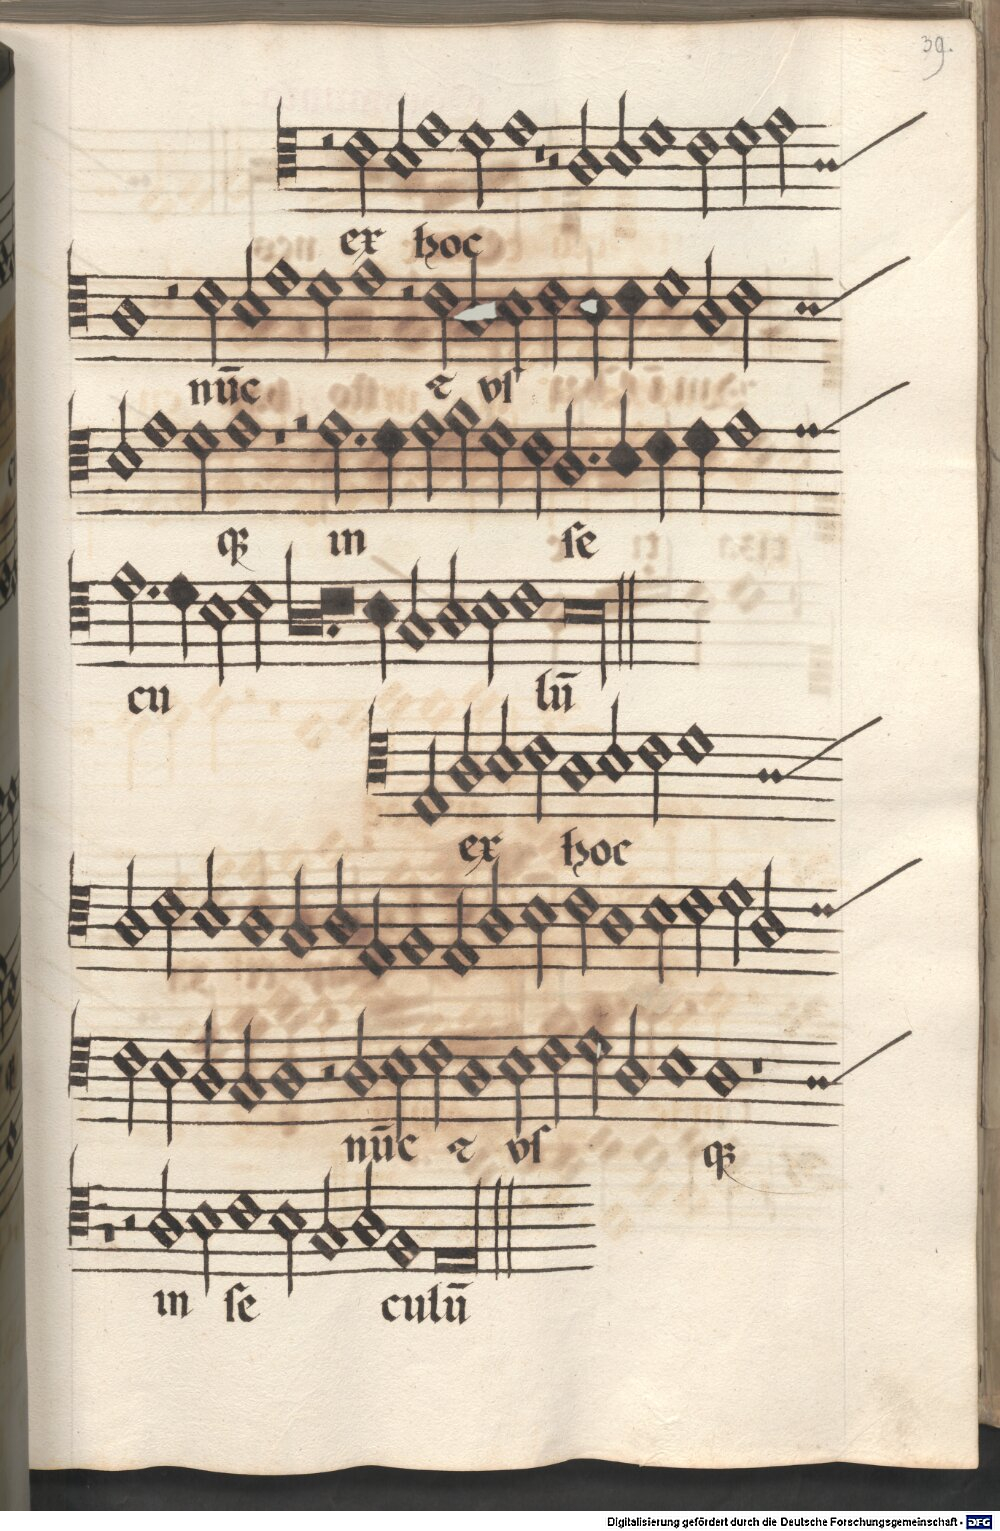 39.
ex hoc
nūc ⁊ vſ
qꝫ in ſe
cu lū
ex hoc
nūc ⁊ vſ qꝫ
in ſe culū
Digitalisierung gefördert durch die Deutsche Forschungsgemeinschaft - DFG